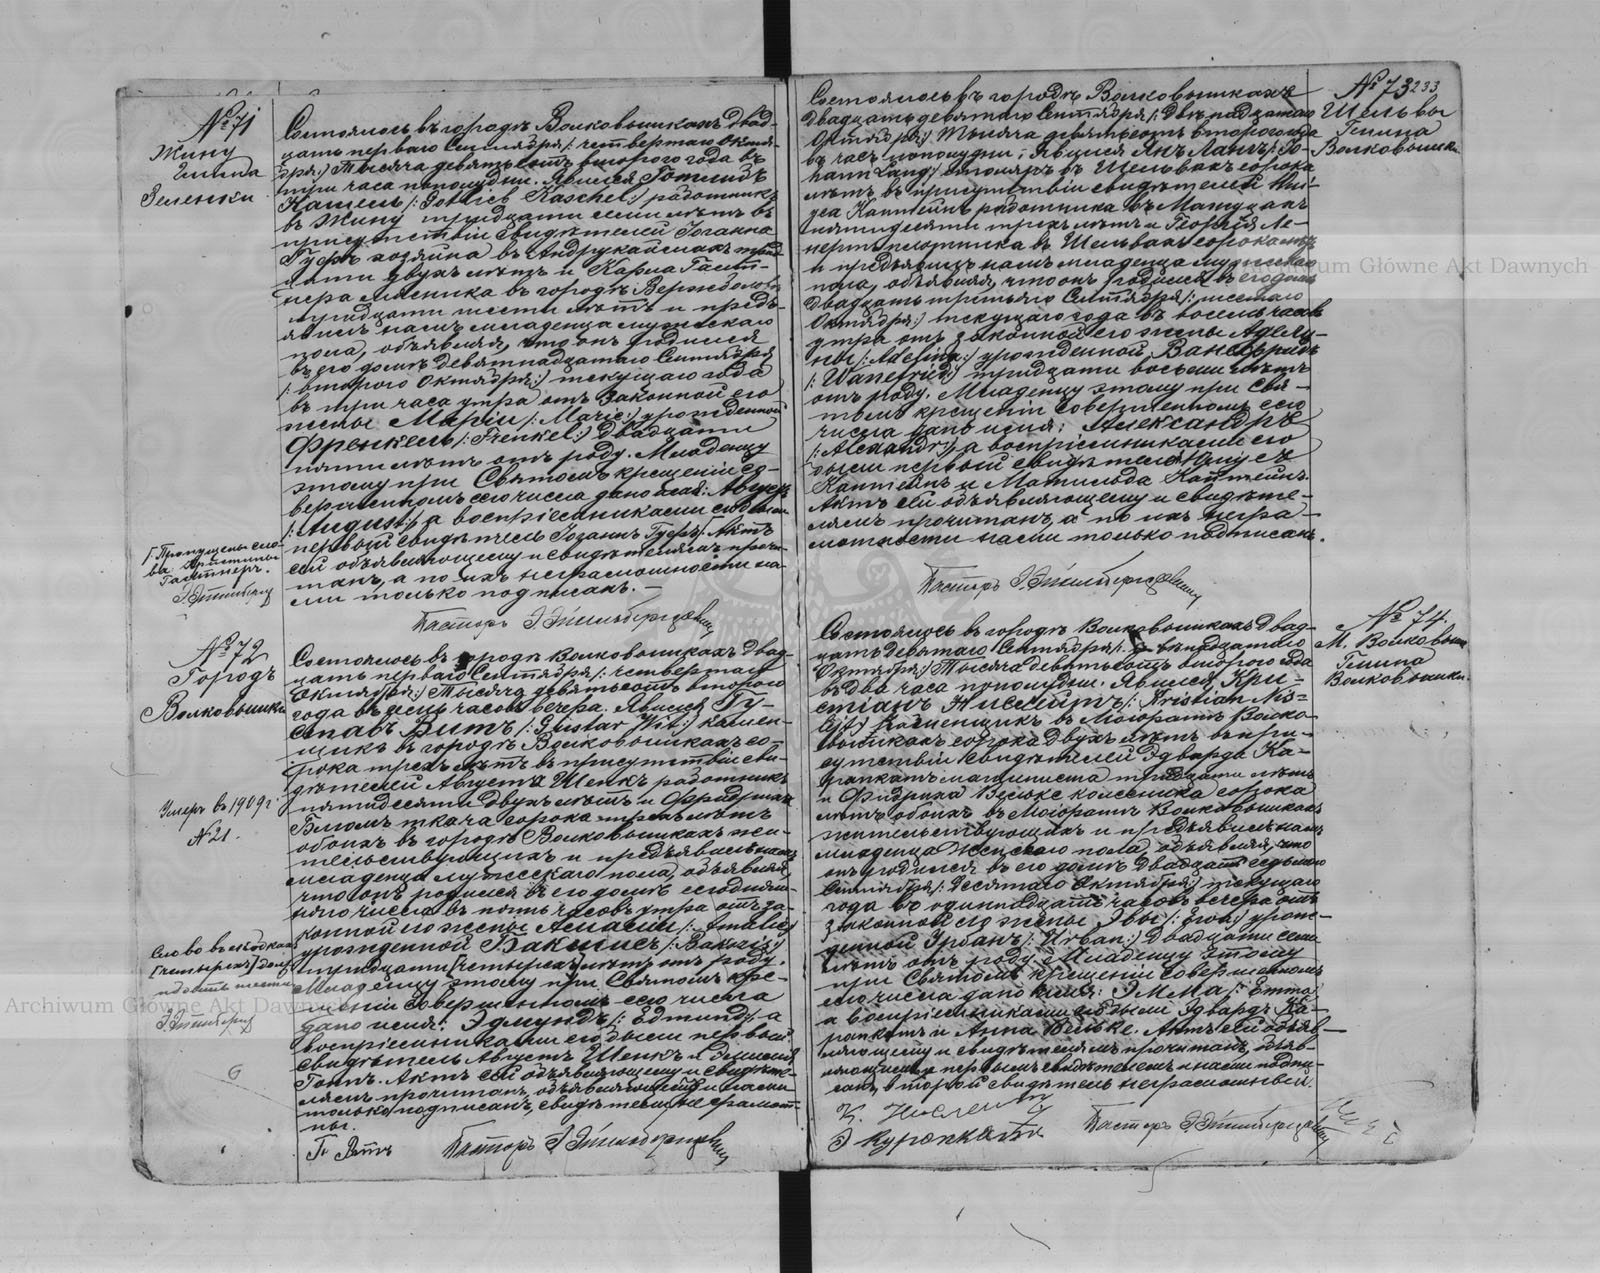 № 71
Жину
Гмина
Зеленки
Состоялось въ городѣ Волковышкахъ двад-
цать перваго Сентября /: четвертаго Октя-
бря :/ тысяча девятьсотъ второго года въ
три часа пополудни. Явился Готлибъ
Кашель /: Gottlieb Kaschel :/ работникъ
въ Жину тридцати семи лѣтъ въ
присутствіи свидѣтелей Іоганна
Гуфъ хозяина въ Андрукайтахъ трид-
цати двухъ лѣтъ и Карла Гаст-
нера мясника въ городѣ Вержболовѣ
тридцати шести лѣтъ и предъ-
явилъ намъ младенца мужескаго
пола, объявляя, что онъ родился
въ его домѣ девятнадцатаго Сентября
/: второго Октября :/ текущаго года
въ три часа утра отъ законной его
жены Маріи /: Marie :/ урожденной
Френкель /: Frenkel :/ двадцати
пяти лѣтъ отъ роду. Младенцу
этому при Святомъ крещеніи со-
вершенномъ сего числа дано имя: Августъ
/: August :/ а воспріемниками его были
первый свидѣтель Іоганъ Гуфъ Г. Актъ
сей объявляющему и свидѣтелямъ прочи-
танъ, а по ихъ неграмотности на-
ми только подписанъ. —
Г. Пропущены сло-
ва: Христины
Гастнеръ.
Пасторъ
№ 72
Городъ
Волковышки
Состоялось въ городѣ Волковышкахъ двад-
цать перваго Сентября /: четвертаго
Октября :/ тысяча девятьсотъ второго
года въ часовъ вечера. Явился Гу-
ставъ Витъ /: Gustav Wit :/ камен-
щикъ въ городѣ Волковышкахъ со-
рока трехъ лѣтъ въ присутствіи сви-
дѣтелей Августа Шенкъ работника
пятидесяти двухъ лѣтъ и Фридриха
ткача сорока трехъ лѣтъ
обоихъ въ городѣ Волковышкахъ жи-
тельствующихъ и предъявилъ намъ
младенца мужескаго пола, объявляя,
что онъ родился въ его домѣ сегодняш-
няго числа въ пять часовъ утра отъ за-
конной его жены Амаліи /: Amalie :/
урожденной
тридцати [четырехъ] лѣтъ отъ роду.
Младенцу этому при Святомъ кре-
щеніи совершенномъ сего числа
дано имя: Эдмундъ /: Edmund :/ а
воспріемниками его были первый
свидѣтель Августъ Шенкъ и
Актъ сей объявляющему и свидѣте-
лямъ прочитанъ, объявляющимъ и нами
только подписанъ, свидѣтели не грамот-
ны.
Умеръ въ 1909 г.
№ 21.
Слово въ скобкахъ
[четырехъ] долж-
но быть шести
Г. Витъ Пасторъ
№ 73 233
Шельвы
Гмина
Волковышки
Состоялось въ городѣ Волковышкахъ
двадцать девятаго Сентября /: двѣнадцатаго
Октября :/ тысяча девятьсотъ второго года
въ часъ пополудни; явился Янъ Лангъ /: Jo-
hann Lang :/ столяръ въ Шельвахъ сорока
лѣтъ въ присутствіи свидѣтелей
работника въ
пятидесяти трехъ лѣтъ и Георгія Ле-
нертъ плотника въ Шельвахъ сорока лѣтъ
и предъявилъ намъ младенца мужескаго
пола, объявляя, что онъ родился въ его домѣ
двадцать третьяго Сентября /: шестаго
Октября :/ текущаго года въ восемь часовъ
утра отъ законной его жены Адели-
ны /: Adelina :/ урожденной Ванефридъ
/: Wanefried :/ тридцати восьми лѣтъ
отъ роду. Младенцу этому при Свя-
томъ крещеніи совершенномъ сего
числа дано имя: Александръ
/: Alexandr :/ а воспріемниками его
были первый свидѣтель
и Матильда
Актъ сей объявляющему и свидѣте-
лямъ прочитанъ, а по ихъ негра-
мотности нами только подписанъ.
Пасторъ
№ 74
М. Волковышки
Гмина
Волковышки
Состоялось въ городѣ Волковышкахъ двад-
цать девятаго Сентября /: двѣнадцатаго
Октября :/ тысяча девятьсотъ второго года
въ два часа пополудни. Явился Кри-
стіанъ /: Kristian
каменщикъ въ Маіоратѣ Волко-
вышкахъ сорока двухъ лѣтъ въ при-
сутствіи свидѣтелей Эдварда Ку-
ропкатъ машиниста тридцати лѣтъ
и Фридриха Вельке колесника сорока
лѣтъ обоихъ въ Маіоратѣ Волковышкахъ
жительствующихъ и предъявилъ намъ
младенца женскаго пола, объявляя, что
онъ родился въ его домѣ двадцать седьмаго
Сентября /: десятаго Октября :/ текущаго
года въ одиннадцать часовъ вечера отъ
законной его жены Эвы /: Ewa :/ урож-
денной Урбанъ /: Urban :/ двадцати семи
лѣтъ отъ роду. Младенцу этому
при Святомъ крещеніи совершенномъ
сего числа дано имя: Эмма /: Emma :/
а воспріемниками его были Эдвардъ Ку-
ропкатъ и Анна Вельке. Актъ сей объяв-
ляющему и свидѣтелямъ прочитанъ, объяв-
ляющимъ и первымъ свидѣтелемъ и нами подпи-
санъ, второй свидѣтель неграмотный.
Э Куропкатъ Пасторъ
Archiwum Główne Akt Dawnych
Archiwum Główne Akt Dawnych